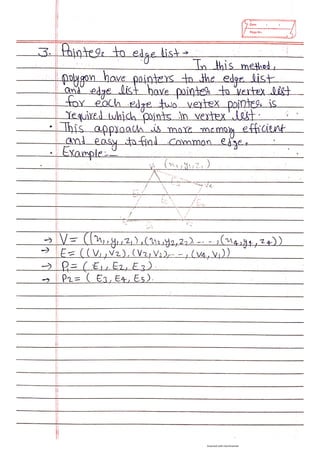 3. Pointer to edge list →
In this method,
polygon have pointers to the edge list
and edge list have pointer to vertex list
for each edge two vertex pointer is
required which points in vertex list.
• This approach is more memory efficient
and easy to find common edge.
• Example:-
(x1, y1, z1)
→ V = ((x1, y1, z1), (x2, y2, z2) - - -, (x4, y4, z4))
→ E = ((V1, V2), (V2, V3), - -, (V4, V1))
→ P1 = (E1, E2, E3).
→ P2 = (E3, E4, E5).
Scanned with CamScanner